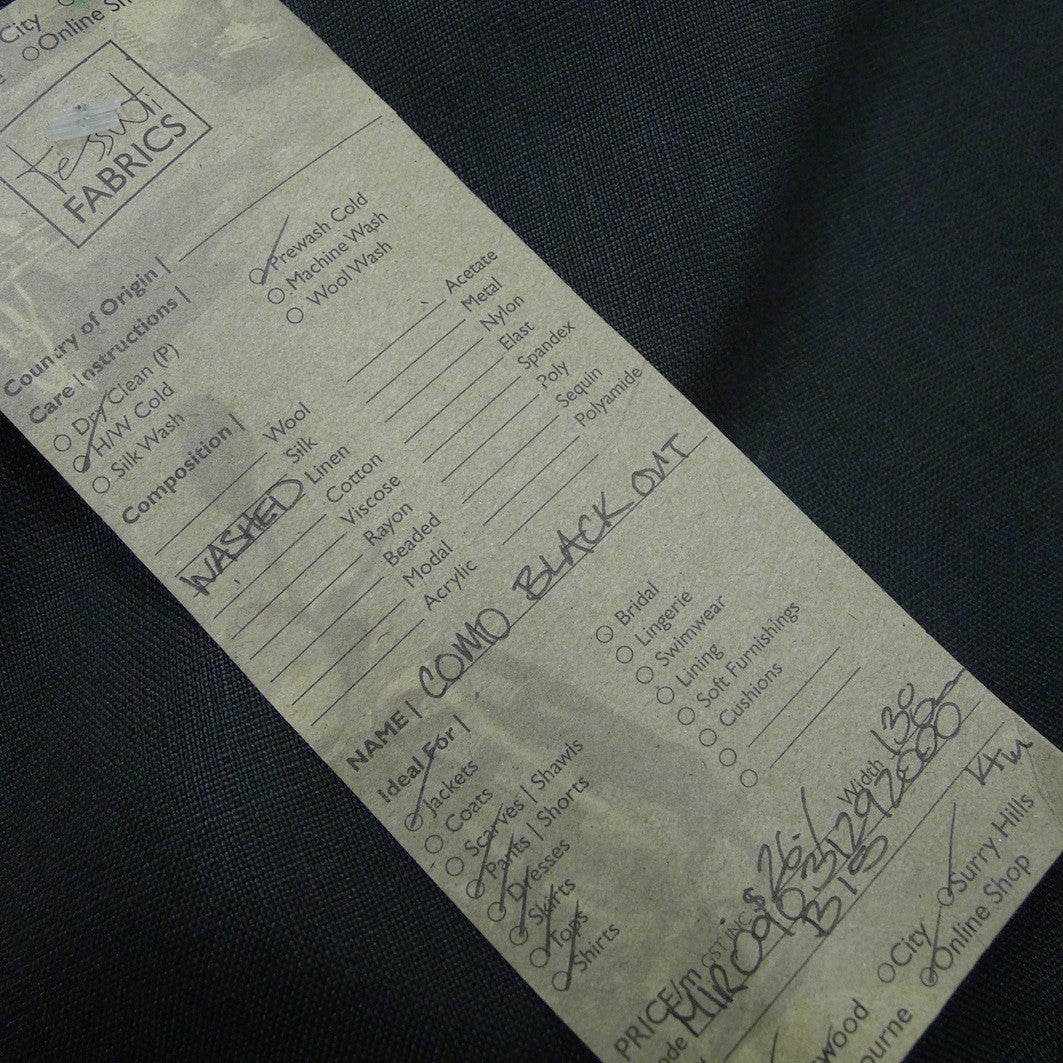 City
Online Sh
tessuti
FABRICS
Country of Origin |
Care Instructions |
Dry Clean (P)
H/W Cold
Silk Wash
Prewash Cold
Machine Wash
Wool Wash
Composition |
Wool
Silk
WASHED Linen
Cotton
Viscose
Rayon
Beaded
Modal
Acrylic
Acetate
Metal
Nylon
Elast
Spandex
Poly
Sequin
Polyamide
NAME | COMO BLACK OUT
Ideal For |
Jackets
Coats
Scarves | Shawls
Pants | Shorts
Dresses
Skirts
Tops
Shirts
Bridal
Lingerie
Swimwear
Lining
Soft Furnishings
Cushions
PRICE/m GST INC $ 26.- Width 130
ode
City
Surry Hills
Online Shop
wood
ourne